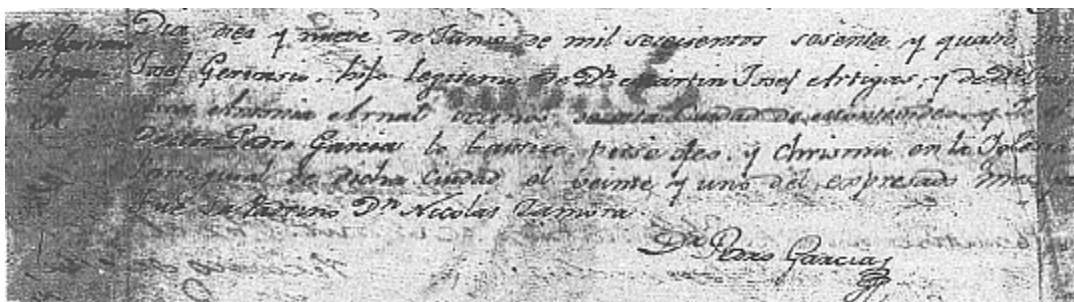 Dia diez y nueve de Junio de mil setecientos sesenta y quatro
Josef Gervasio, hijo legitimo de Dn Martin Josef Artigas, y de Da
Antonia Arnal vecinos de esta Ciudad de Montevideo y Yo el
Doctor Pedro Garcia lo bautice, puse oleo, y chrisma en la Iglesia
Parroquial de dicha Ciudad el veinte y uno del expresado mes
fue su Padrino Dn Nicolas Zamora.
Dr Pedro Garcia